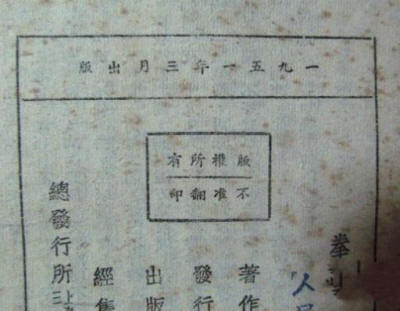 一九五一年三月出版
版權所有
不准翻印
拳
人
著作
發行
出版
經
總發行所